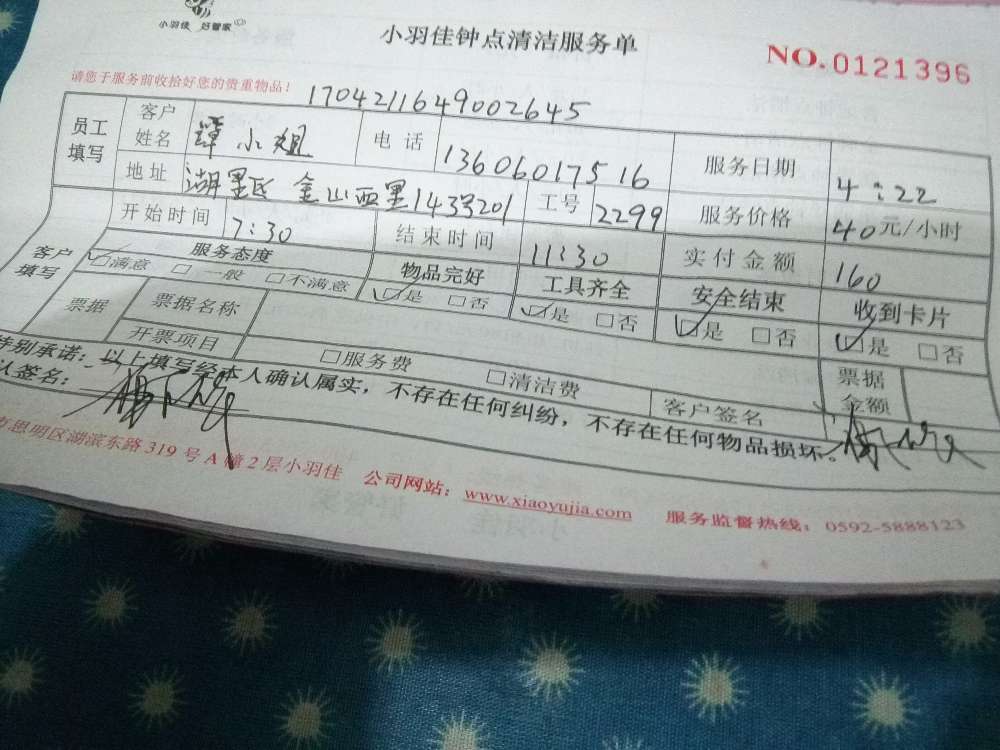 小羽佳 好管家
小羽佳钟点清洁服务单
NO.0121396
请您于服务前收拾好您的贵重物品！
1704211649002645
员工填写 客户姓名 谭小姐 电话 13606017516 服务日期 4:22
地址 湖里区金山西里143号201 工号 2299 服务价格 40元/小时
开始时间 7:30 结束时间 11:30 实付金额 160
客户填写 服务态度 物品完好 工具齐全 安全结束 收到卡片
☑满意 □一般 □不满意 ☑是 □否 ☑是 □否 ☑是 □否 ☑是 □否
票据 票据名称
开票项目 □服务费 □清洁费 票据金额
特别承诺：以上填写经本人确认属实，不存在任何纠纷，不存在任何物品损坏。
认签名： 客户签名
市思明区湖滨东路319号A幢2层小羽佳 公司网站：www.xiaoyujia.com 服务监督热线：0592-5888123